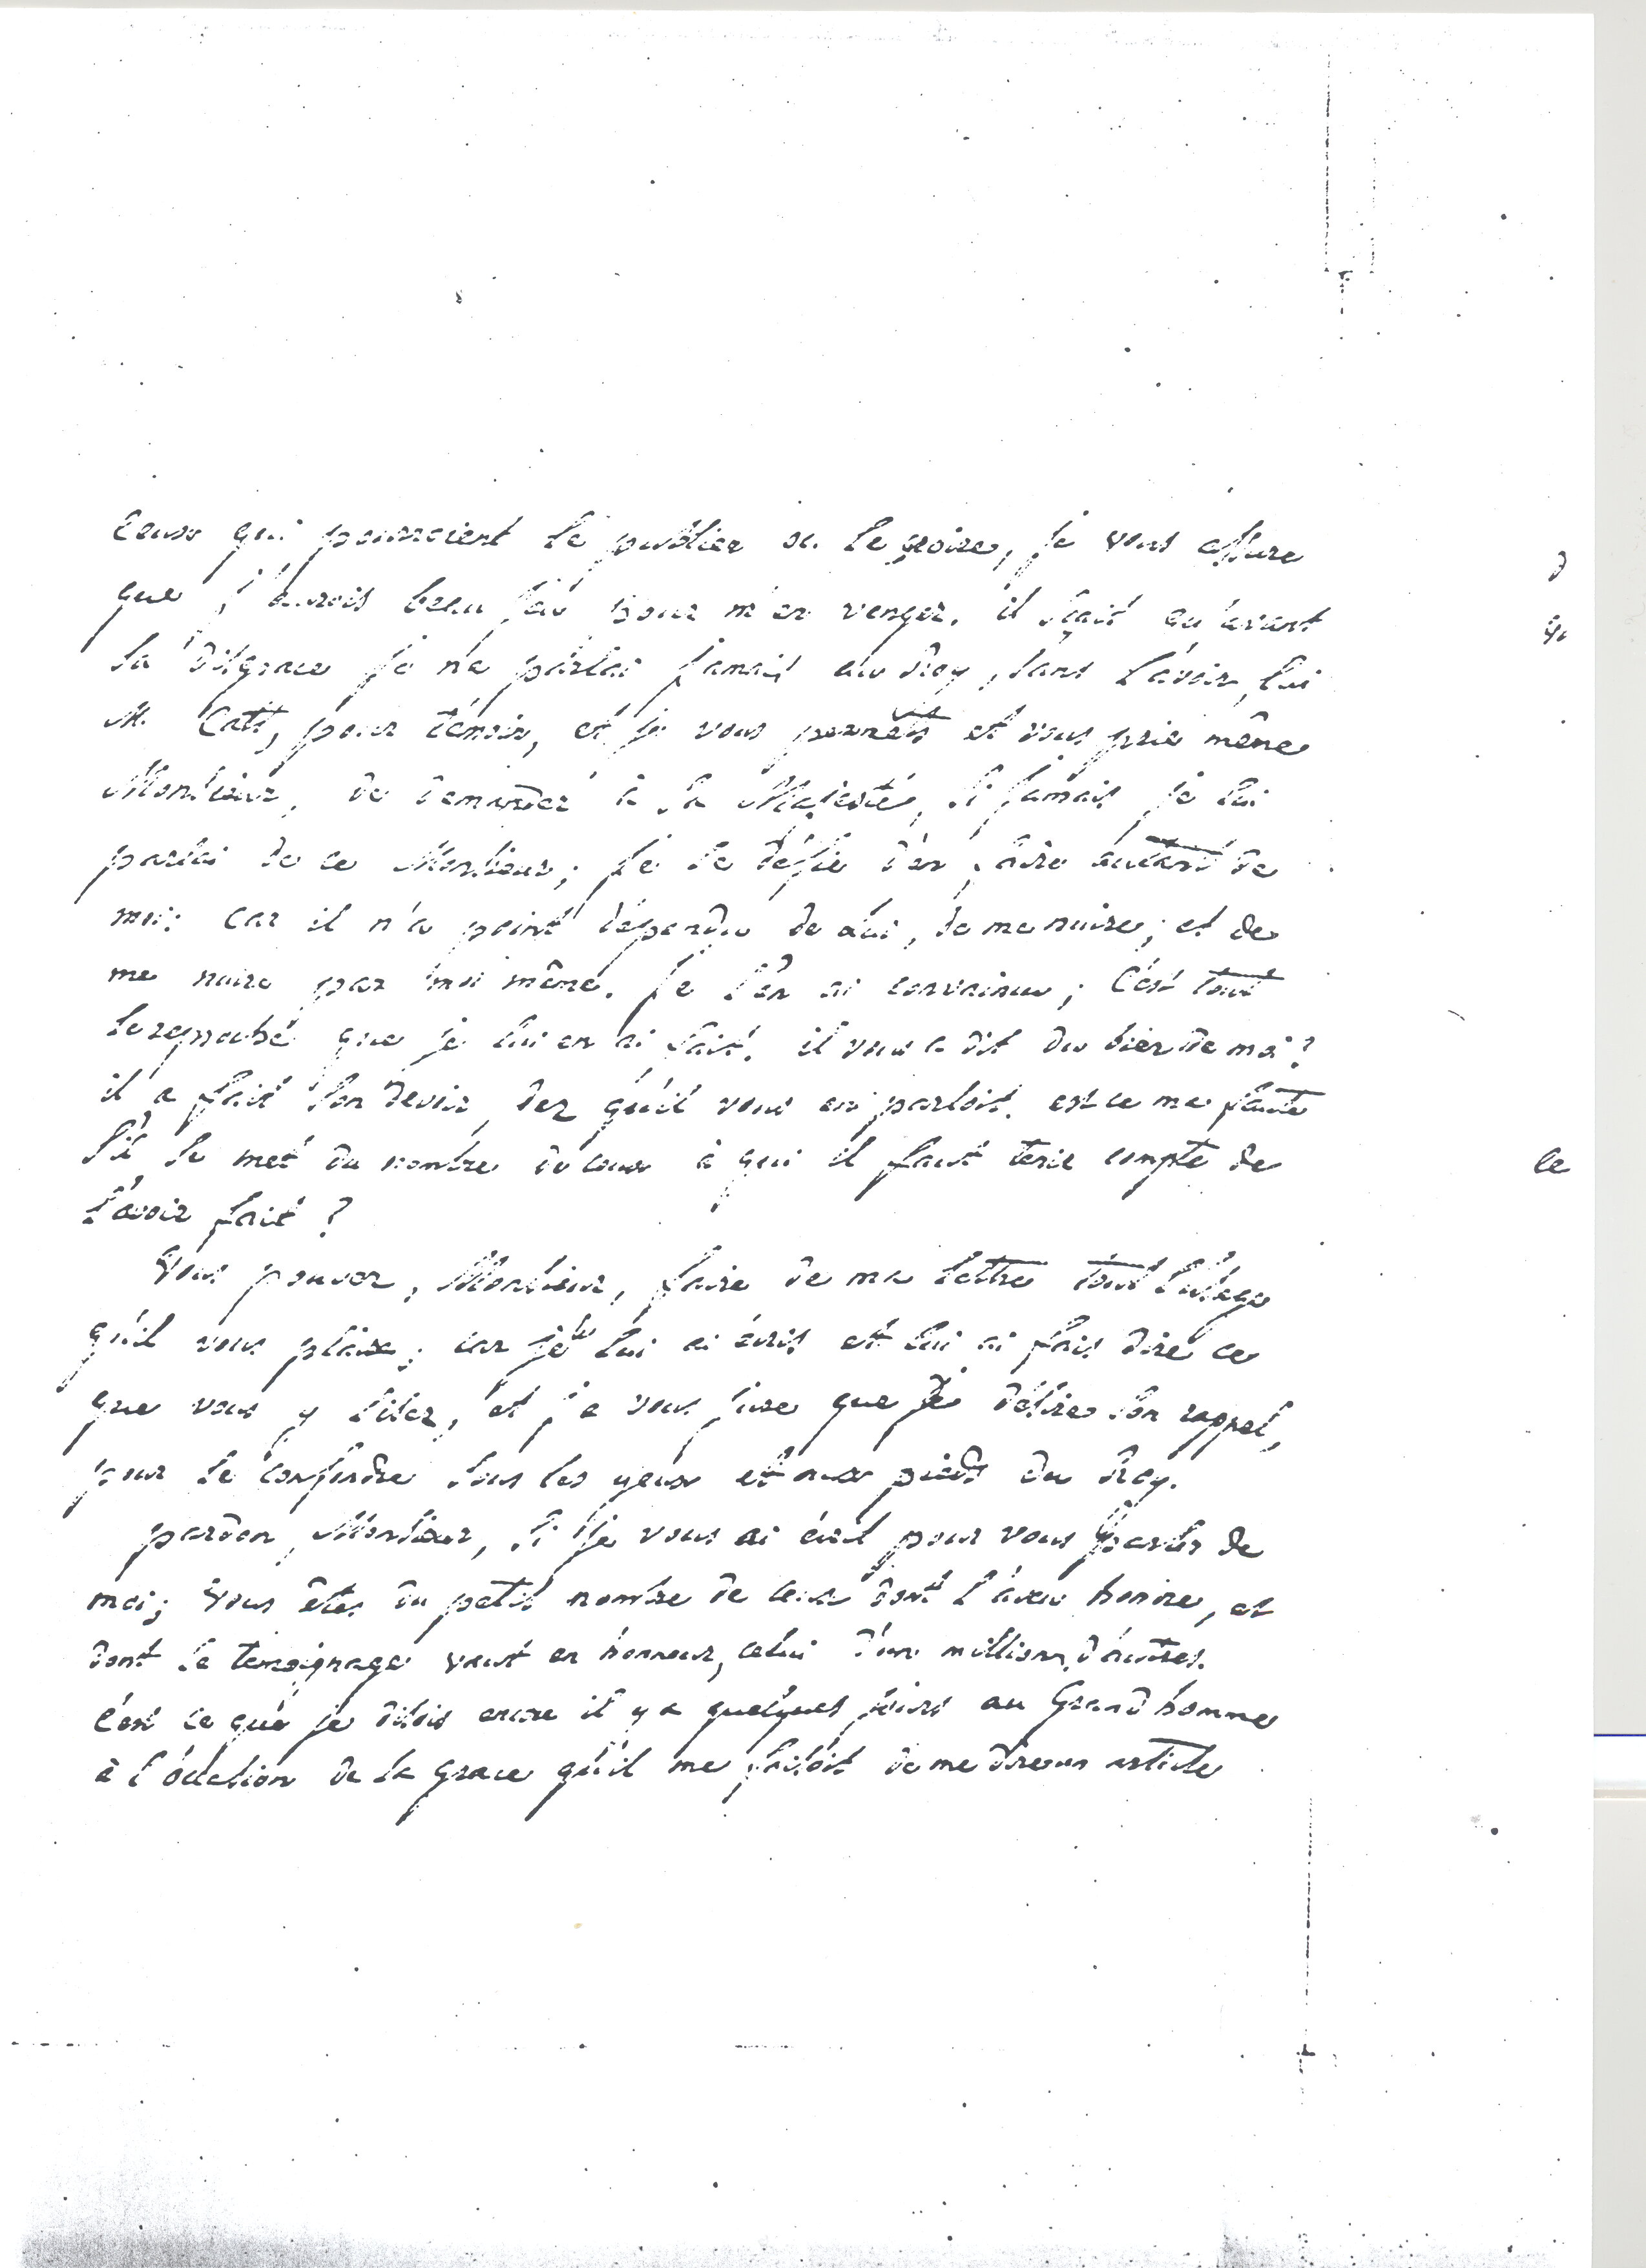 ceux qui pourroient le publier ou le croire, je vous assure
que j'aurois beau jeu pour m'en venger. il sçait qu'avant
sa disgrace je ne parlai jamais au Roy, sans l'avoir, lui
M. Catt, pour témoin, et je vous permets et vous prie même
Monsieur, de demander à Sa Majesté, si jamais je lui
parlai de ce Monsieur; je le défie d'en faire autant de
moi: car il n'a point dépendu de lui, de me nuire; et de
me nuire par moi même. je l'en ai convaincu; c'est tout
le reproche que je lui en ai fait. il vous a dit du bien de moi?
il a fait son devoir, dez qu'il vous en parloit. est ce ma faute
s'il se met du nombre de ceux à qui il faut tenir compte de
l'avoir fait?
Vous pouvez, Monsieur, faire de ma lettre tout l'usage
qu'il vous plaira; car je lui ai écris et lui ai fais dire ce
que vous y lisez, et je vous jure que je désire son rappel,
pour le confondre sous les yeux et aux pieds du Roy.
pardon, Monsieur, si je vous ai écrit pour vous parler de
moi; vous êtes du petit nombre de ceux dont l'aveu honore, et
dont le temoignage vaut en honneur, celui d'un million d'autres.
c'est ce que je disois encore il y a quelques jours au Grand homme
à l'occasion de la grace qu'il me faisoit de me dire un article
le